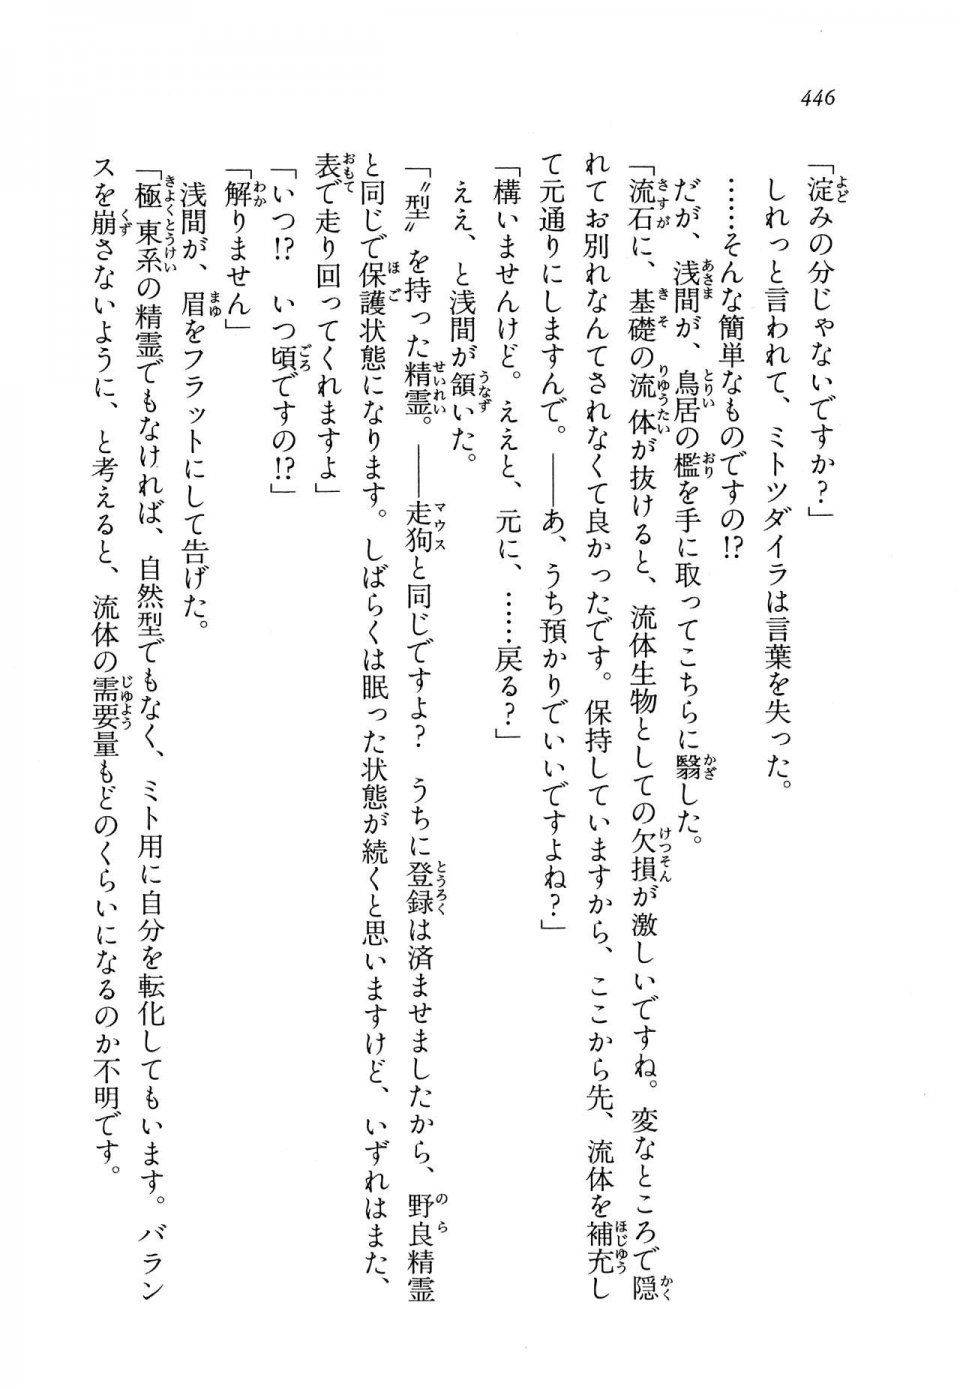 446
「淀みの分じゃないですか？」
しれっと言われて、ミトツダイラは言葉を失った。
……そんな簡単なものですの!?
だが、浅間が、鳥居の檻を手に取ってこちらに翳した。
「流石に、基礎の流体が抜けると、流体生物としての欠損が激しいですね。変なところで隠
れてお別れなんてされなくて良かったです。保持していますから、ここから先、流体を補充し
て元通りにしますんで。――あ、うち預かりでいいですよね？」
「構いませんけど。ええと、元に、……戻る？」
ええ、と浅間が頷いた。
「〝型〟を持った精霊。――走狗と同じですよ？　うちに登録は済ませましたから、野良精霊
と同じで保護状態になります。しばらくは眠った状態が続くと思いますけど、いずれはまた、
表で走り回ってくれますよ」
「いつ!?　いつ頃ですの!?」
「解りません」
浅間が、眉をフラットにして告げた。
「極東系の精霊でもなければ、自然型でもなく、ミト用に自分を転化してもいます。バラン
スを崩さないように、と考えると、流体の需要量もどのくらいになるのか不明です。